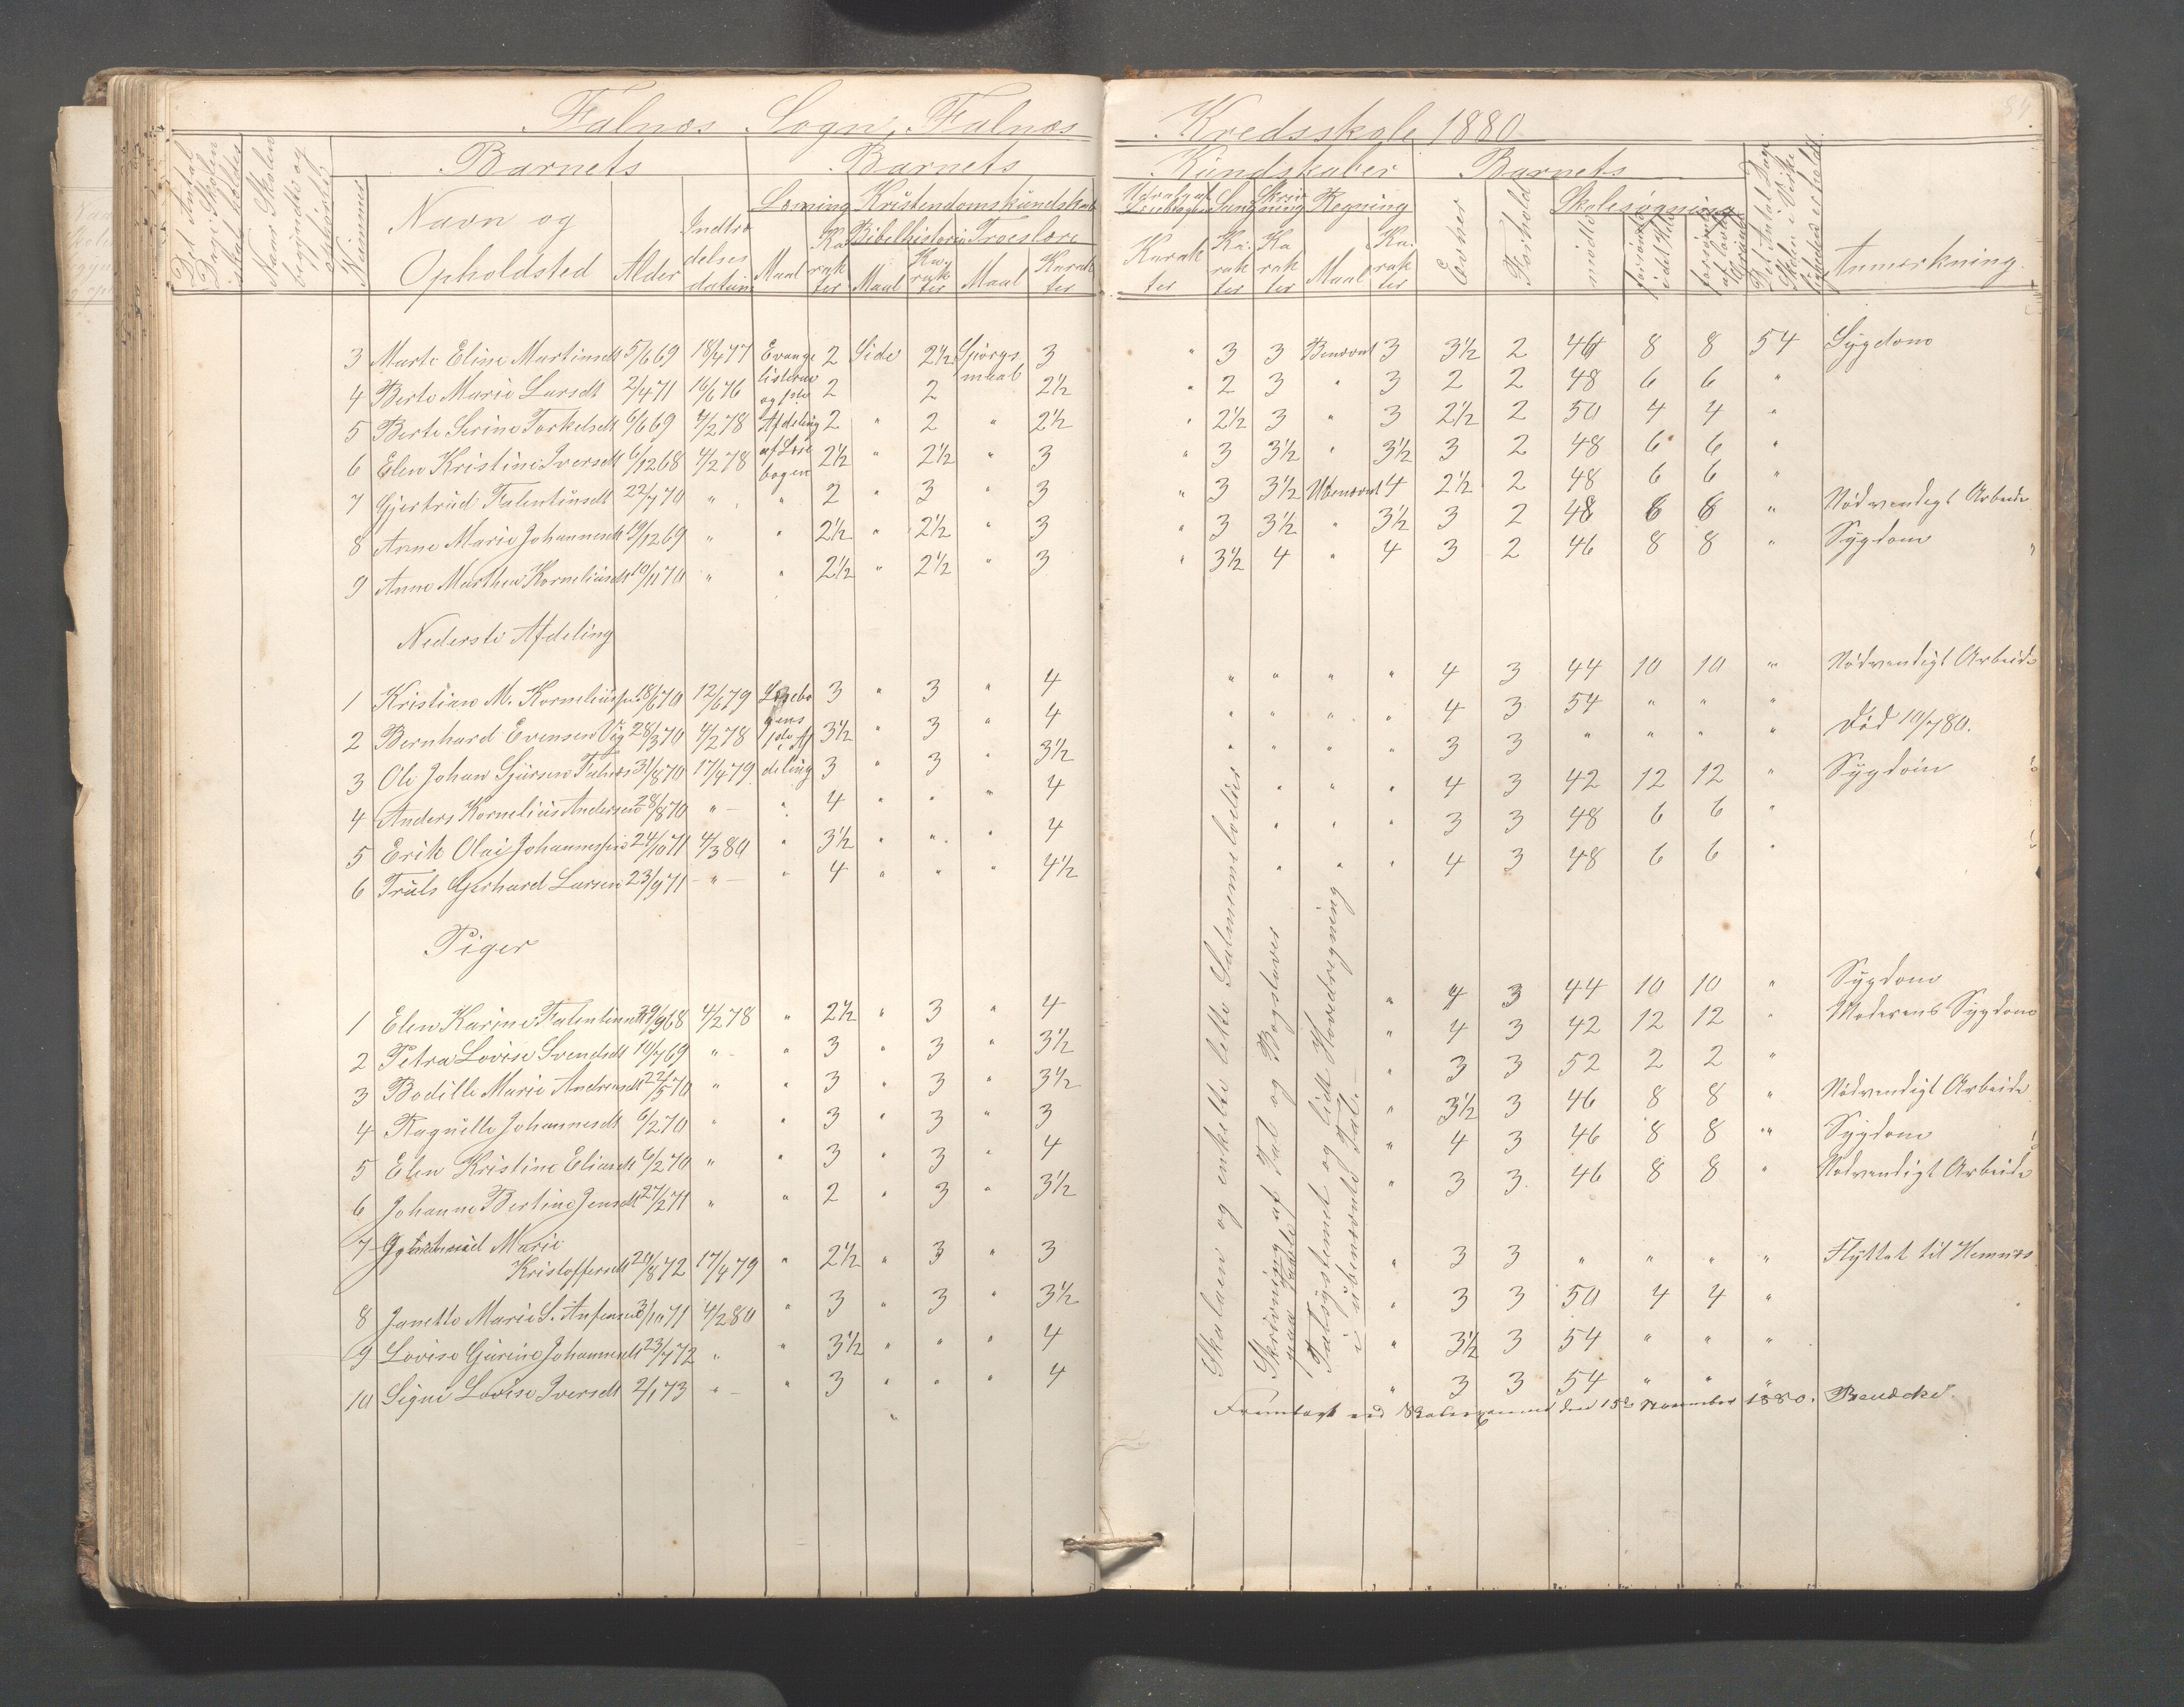 Falnæs Sogn, Falnæs Kredsskole 1880
84
Det Antal Dage Skolen skal holdes
Naar Skolen begyndte og ophørte
Nummer
Barnets
Navn og Opholdsted
Alder
Indtrædelsesdatum
Barnets Kundskaber
Læsning
Maal
Karakter
Kristendomskundskab
Bibelhistorie
Maal
Karakter
Troeslære
Maal
Karakter
Udvalgt af Læsebogen
Karakter
Sang
Karakter
Skrivning
Karakter
Regning
Maal
Karakter
Barnets
Evner
Forhold
Skolesøgning
mødte
forsømte i det Hele
forsømte af lovlig Grund
Det Antal Dage Skolen i Virkeligheden er holdt
Anmærkning
3 Marte Eline Martinsdt 5/6 69 18/4 77 Evangelisterne og 1ste Afdeling af Læsebogen 2 Side 2½ Spörgsmaal 3 " 3 3 Benævnt 3 3½ 2 46 8 8 54 Sygdom
4 Berte Marie Larsdt 2/4 71 16/6 76 2 2 2½ " 2 3 " 3 2 2 48 6 6 "
5 Berte Serine Torkelsdt 6/6 69 4/2 78 2 " 2 " 2½ " 2½ 3 " 3 2½ 2 50 4 4 "
6 Elen Kristine Iversdt 6/12 68 4/2 78 2½ " 2½ " 3 " 3 3½ " 3½ 3 2 48 6 6 "
7 Gjertrud Falentinsdt 22/7 70 " " 2 " 3 " 3 " 3 3½ Ubenævnt 4 2½ 2 48 6 6 "
8 Anne Marie Johannesdt 19/12 69 " " 2½ " 2½ " 3 " 3 3½ " 3½ 3 2 48 6 6 " Nödvendigt Arbeide
9 Anne Marthea Korneliusdt 10/11 70 " " 2½ " 2½ " 3 " 3½ 4 " 4 3 2 46 8 8 " Sygdom
Nederste Afdeling
1 Kristian M. Korneliussen 18/6 70 12/6 79 Læsebogens 1ste Afdeling 3 " 3 " 4 " " " " 4 3 44 10 10 " Nödvendigt Arbeide
2 Bernhard Evensen Våg 28/3 70 4/2 78 3½ " 3 " 4 " " " " 4 3 54 " " "
3 Ole Johan Sjursen Falnæs 31/8 70 17/4 79 3 " 3 " 3½ " " " " 3 3 " " " " Död 10/7 80.
4 Anders Kornelius Andersen 28/8 70 " " 4 " " " 4 " " " 4 3 42 12 12 " Sygdom
5 Erik Olai Johannessen 24/10 71 4/3 80 " 3½ " " " 4 " " " 3 3 48 6 6 "
6 Truls Gerhard Larsen 23/9 71 " " 4 " " " 4½ " " " 4 3 48 6 6 "
Piger
1 Elen Karine Falentinsdt 29/9 68 4/2 78 " 2½ " 3 " 4 " 4 3 44 10 10 " Sygdom
2 Petra Lovise Svendsdt 10/7 69 " " 3 " 3 " 3½ " 4 3 42 12 12 " Moderens Sygdom
3 Bodille Marie Andreasdt 22/5 70 " " 3 " 3 " 3½ " 3 3 52 2 2 "
4 Ragnille Johannesdt 6/2 70 " " 3 " 3 " 3 " 3½ 3 46 8 8 " Nödvendigt Arbeide
5 Elen Kristine Eliasdt 6/2 70 " " 3 " 3 " 4 " 4 3 46 8 8 " Sygdom
6 Johanne Bertine Jensdt 27/2 71 " " 2 " 3 " 3½ " 3 3 46 8 8 " Nödvendigt Arbeide
7 Marie Kristoffersdt 20/8 72 17/4 79 " 2½ " 3 " 3 " 3 3 " " " " Flyttet til Hemnæs
8 Janette Marie S. 3/10 71 4/2 80 " 3 " 3 " 3½ " 3 3 50 4 4 "
9 Lovise Gurine Johannesdt 23/7 72 " " 3½ " " " 4 " 3½ 3 54 " " "
10 Signe Lovise Iversdt 2/1 73 " " 3 " " " 4 " 3 3 54 " " "
Skalaen og enkelte lette Salmemelodier
Skrivning af Tal og Bogstaver paa Tavle
Talsystemet og lidt Hovedregning i ubenævnte Tal.
Fremlagt ved Skoleexamen den 15de November 1880.